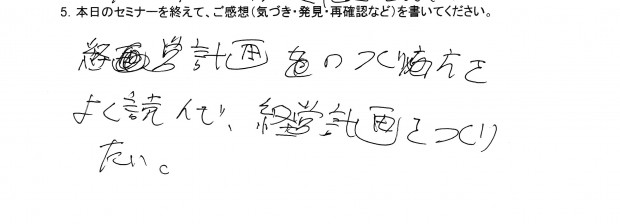 5. 本日のセミナーを終えて、ご感想(気づき・発見・再確認など)を書いてください。
経営計画をのつくり方を
よく読んで、経営計画をつくり
たい。